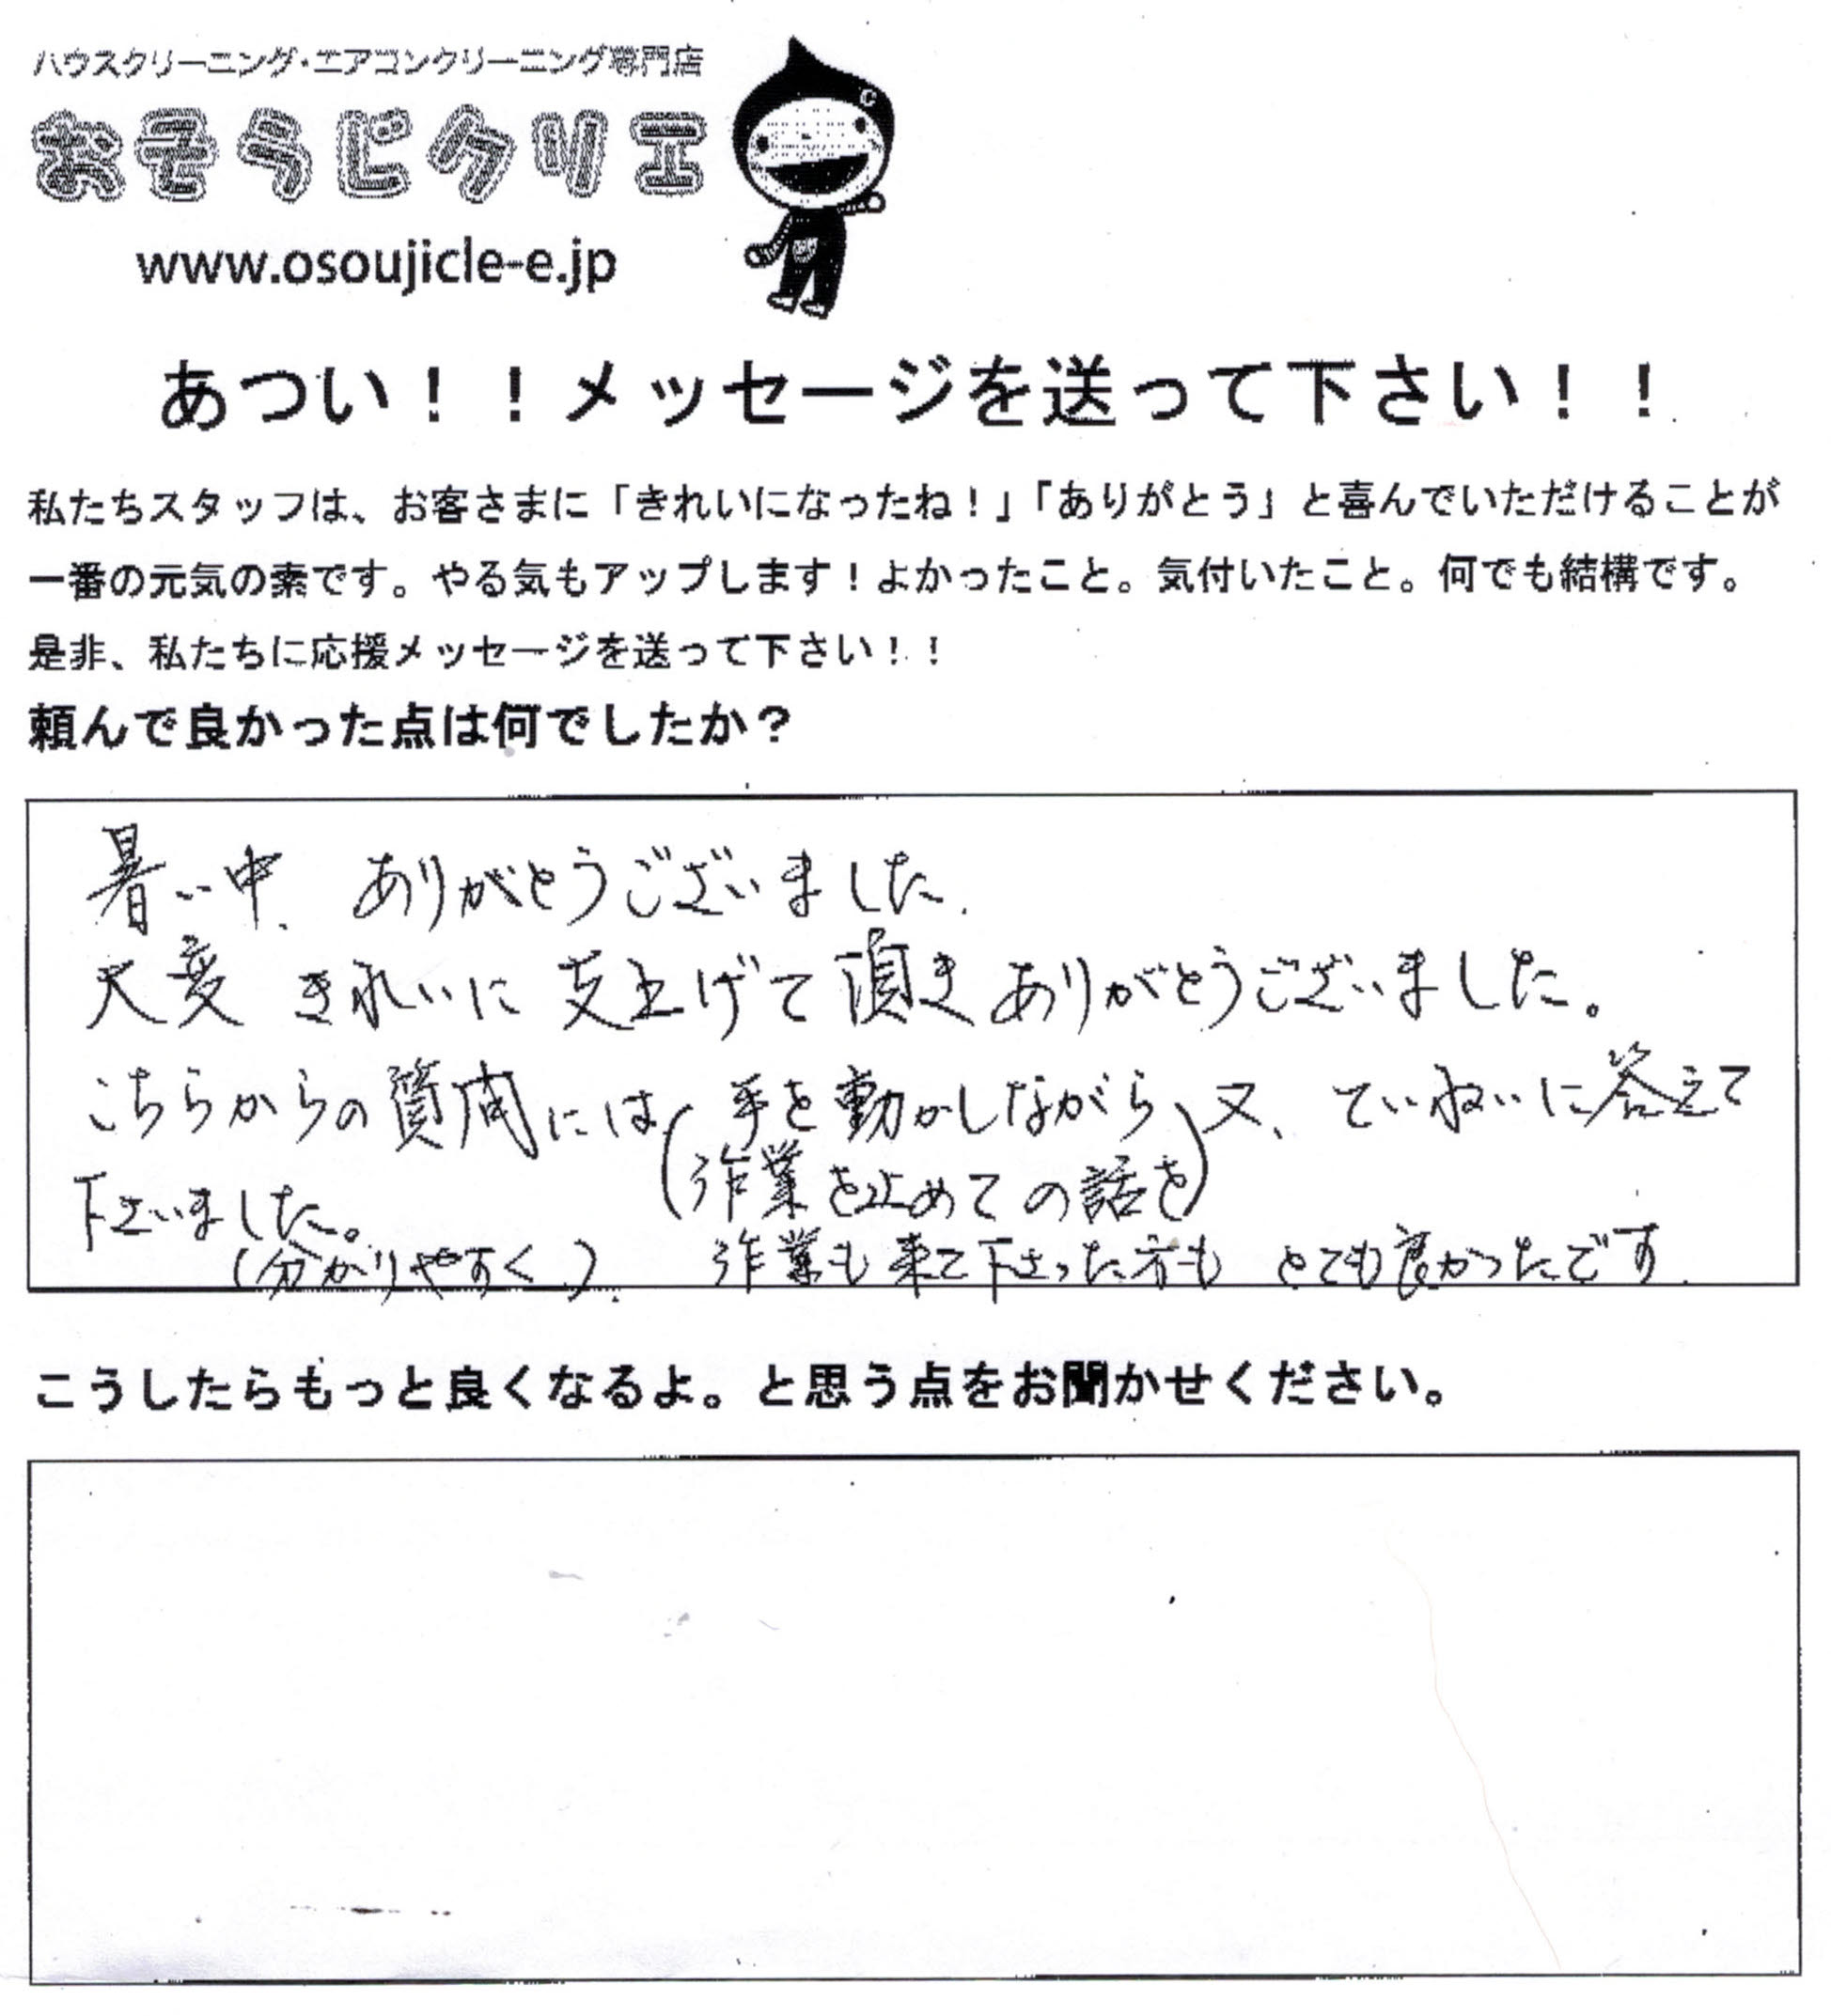 ハウスクリーニング・エアコンクリーニング専門店
おそうじクリエ
C
www.osoujicle-e.jp
あつい！！メッセージを送って下さい！！
私たちスタッフは、お客さまに「きれいになったね！」「ありがとう」と喜んでいただけることが
一番の元気の素です。やる気もアップします！よかったこと。気付いたこと。何でも結構です。
是非、私たちに応援メッセージを送って下さい！！
頼んで良かった点は何でしたか？
暑い中、ありがとうございました.
大変 きれいに 支上げて頂き ありがとうございました。
こちらからの質問には(手を動かしながら)又、ていねいに答えて
(作業を止めての話を)
下さいました。
(分かりやすく). 作業も来て下さった方も とても良かったです.
こうしたらもっと良くなるよ。と思う点をお聞かせください。